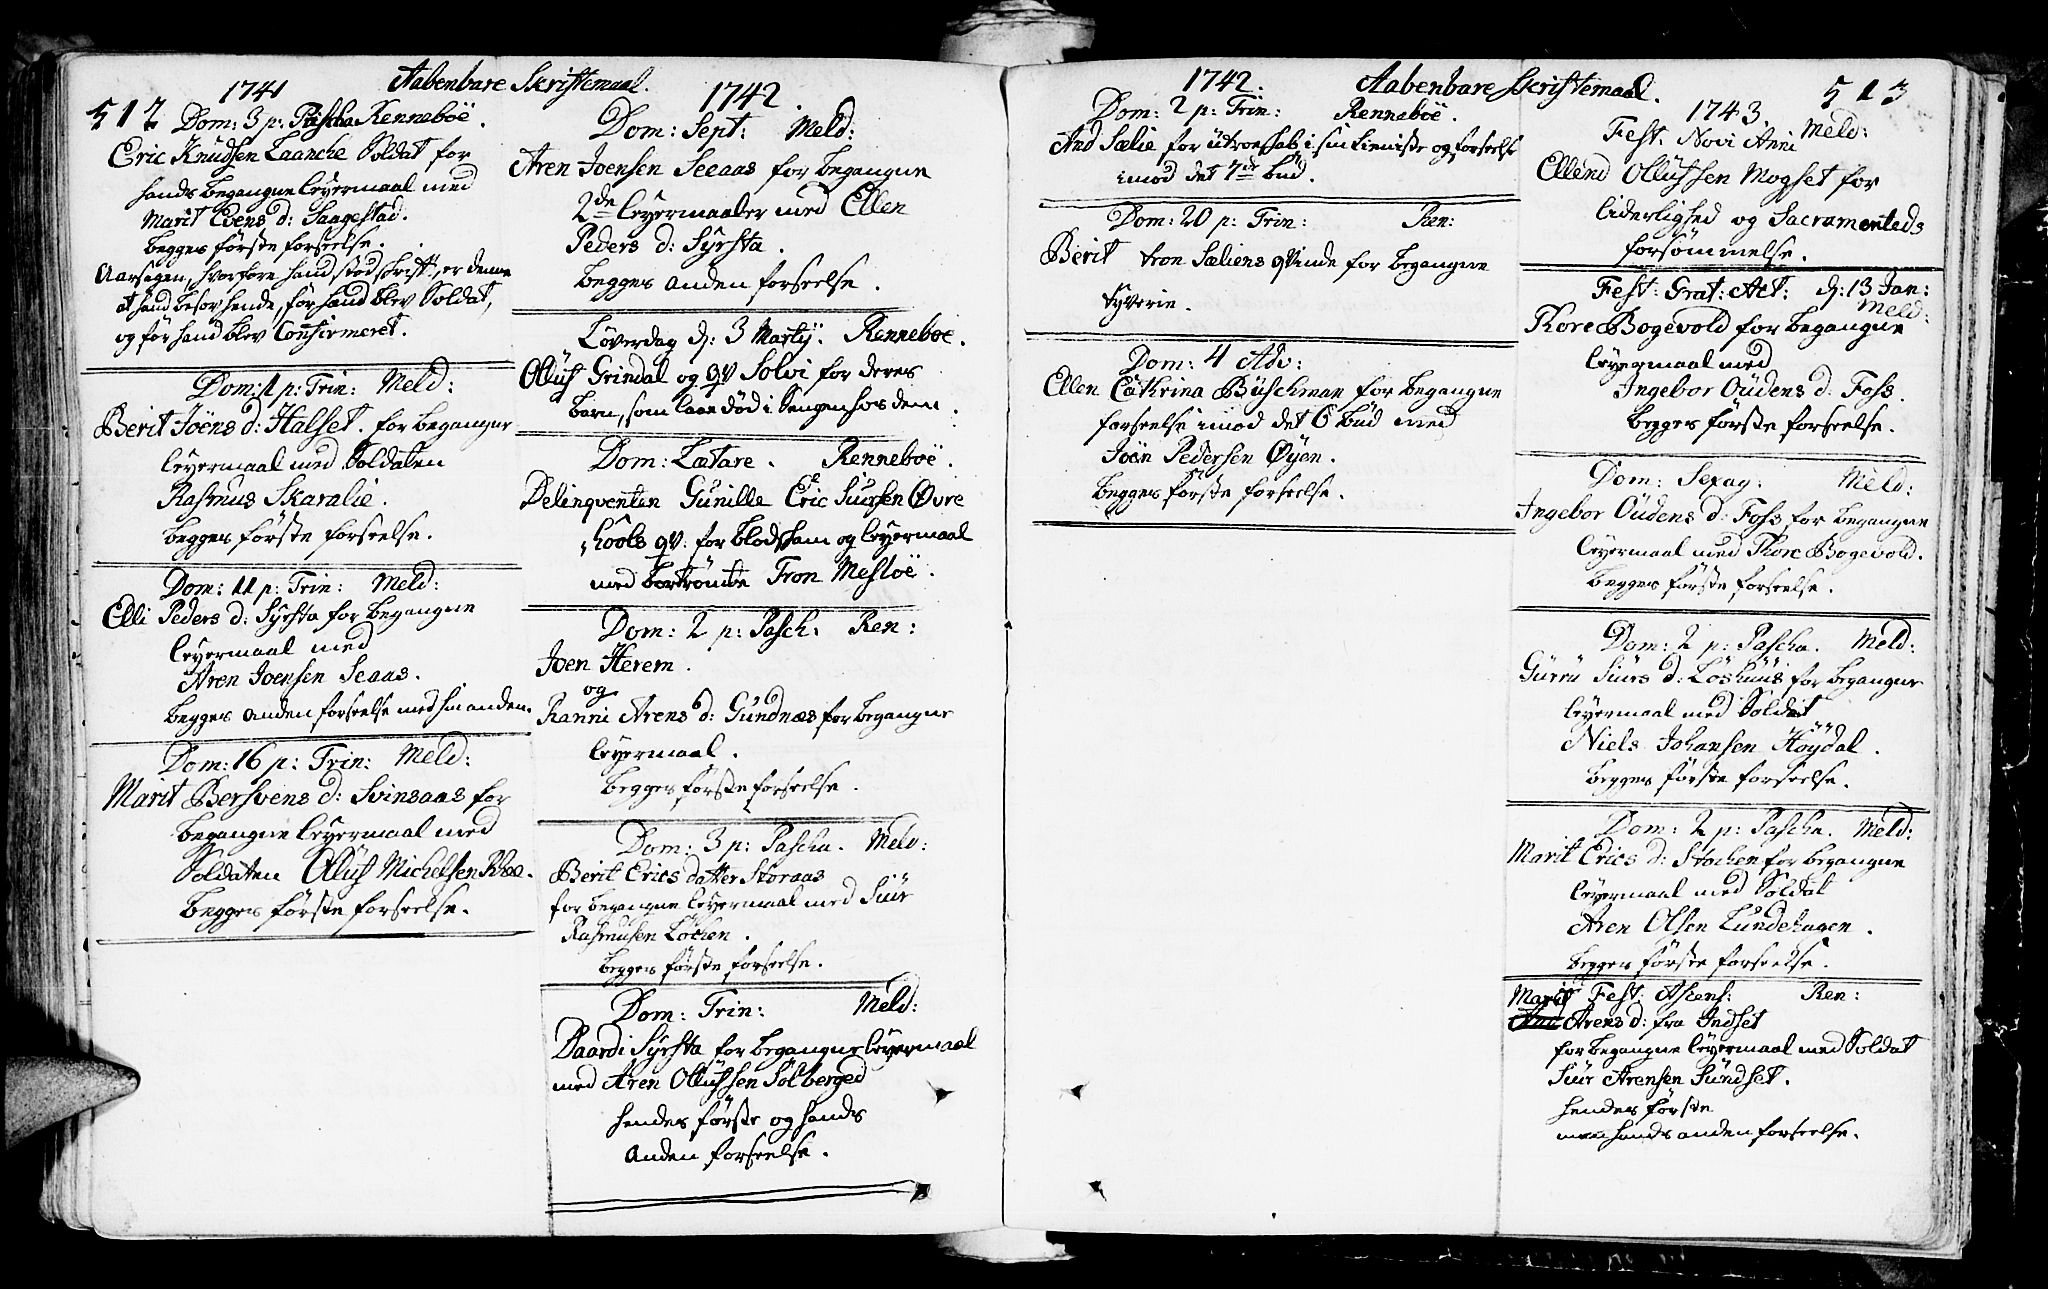 512
1741
Aabenbare Skriftemaal.
Dom: 3 p: Pascha Renneböe.
Eric Knudsen Laanche Soldat for
hands begangne leyermaal med
Marit Evens d: Saagestad.
begges første forseelse.
Aarsagen, hvorfore hand stod schrift:, er denne
at hand besov hende, før hand blev Soldat,
og før hand blev Confirmeret.
Dom: 1 p: Trin: Meld:
Berit Joens d: Halset. for begangne
leyermaal med Soldaten
Rasmus Skaralie.
begges første forseelse.
Dom: 11 p: Trin: Meld:
Elli Peders d: Syrsta for begangne
leyermaal med
Aren Joensen Seaas.
begges anden forseelse med hin anden.
Dom: 16 p: Trin: Meld:
Marit Bersvens d: Svinsaas for
begangne leyermaal med
Soldaten Olluf Michelsen
begges første forseelse.
1742.
Dom: Sept: Meld:
Aren Joensen Seeaas for begangne
2de leyermaaler med Ellen
Peders d: Syrsta.
begges anden forseelse.
Løverdag d: 3 Martij. Renneboe.
Olluf Grindal og qv Solvi for deres
barn, som laae død i Sengen hos dem.
Dom: Lætare. Renneböe.
Delinqventen Gunille Eric Siursen Øvre
hools qv: for blodskam og leyermaal
med bortrömte Tron Mesloë.
Dom: 2 p: Pasch: Ren:
Joen Herem.
og
Ranni Arens d: Gundnæs for begangne
leyermaal.
begges første forseelse.
Dom: 3 p: Pascha. Meld:
Berit Erics datter Storaas
for begangne leyermaal med Siur
Rasmusen Løchen.
begges første forseelse.
Dom: Trin: Meld:
Baardi Syrsta for begangne leyermaal
med Aren Ollufsen Solberged
hendes første og hands
anden forseelse.
1742.
Aabenbare Skriftemaal.
513
Dom: 2 p: Trin: Renneböe.
And Sælie for utroeskab i sin tienniste og forseelse
imod det 7de bud.
Dom: 20 p: Trin: Ren:
Berit Tron Sæliens qvinde for begangne
tyverie.
Dom: 4 Adv:
Ellen Cathrina Buschman for begangne
forseelse imod det 6 bud med
Joen Pedersen Øyen.
begges første forseelse.
1743.
Fest: Novi Anni Meld:
Ellend Ollufsen Mogset for
liderlighed og Sacramenteds
forsømmelse.
Fest: Grat: Act: d: 13 Jan:
Meld:
Thore Bogevold for begangne
leyermaal med
Ingebor Oudens d: Foss.
begges første forseelse.
Dom: Sexag: Meld:
Ingebor Oudens d: Foss for begangne
leyermaal med Thore Bogevold.
begges første forseelse.
Dom: 2 p: Pascha. Meld:
Guru Siurs d: Løshuus for begangne
leyermaal med Soldat
Niels Johansen Höydal.
begges første forseelse.
Dom: 2 p: Pascha. Meld:
Marit Erics d: Stochen for begangne
leyermaal med Soldat
Aren Olsen Lundehagen.
begges første forseelse.
Fest: Ascens: Ren:
Marit Arens d: fra Indset
for begangne leyermaal med Soldat
Siur Arensen Sundset.
hendes første
men hands anden forseelse.